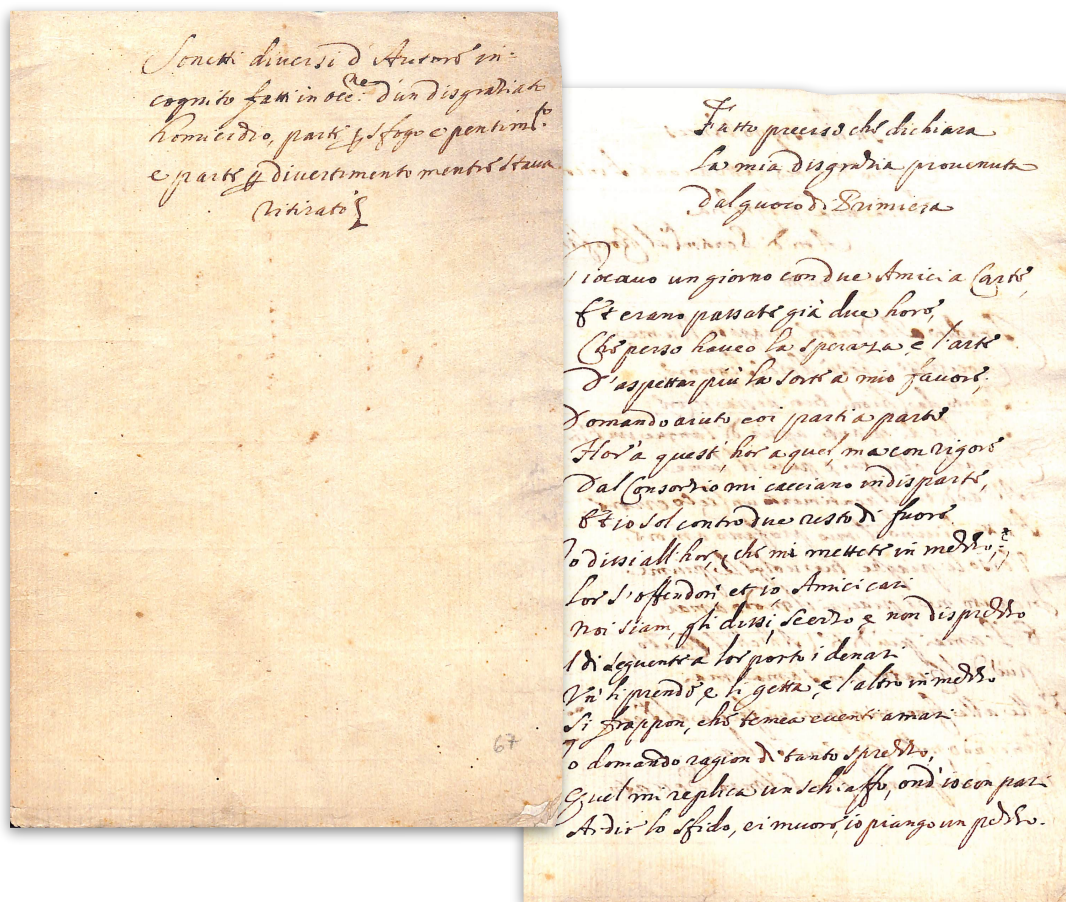 Sonetti diversi d'Autore in=
cognito fatti in occ.ne d'un disgratiato
homicidio, parte p sfogo e pentim.to
e parte p divertimento mentre stava
ritirato
67
Fatto preciso che dichiara
la mia disgrazia provenuta
dal guoco di Primiera
Giocavo un giorno con due Amici a Carte,
Et erano passate già due hore,
Che perso haveo la speranza, e l'arte
D'aspettar più la sorte a mio favore;
Domando aiuto coi parti a parte
Hor'a quest', hor a quel, ma con rigore
Dal Consorzio mi cacciano in disparte,
Et io sol contro due resto di fuore.
Io dissi all'hor, che mi mettete in mezzo,
Lor s'offendon, et io, Amici cari
Noi siam, gli dissi, scerzo, e non disprezzo
Il dì seguente a lor porto i denari
Un li prende, e li getta, e l'altro in mezzo
Si frappon, che temea eventi amari
Io domando ragion di tanto sprezzo,
Quel mi replica un schiaffo, ond'io con pari
Ardir lo sfido, ei muore, io piango un pezzo.